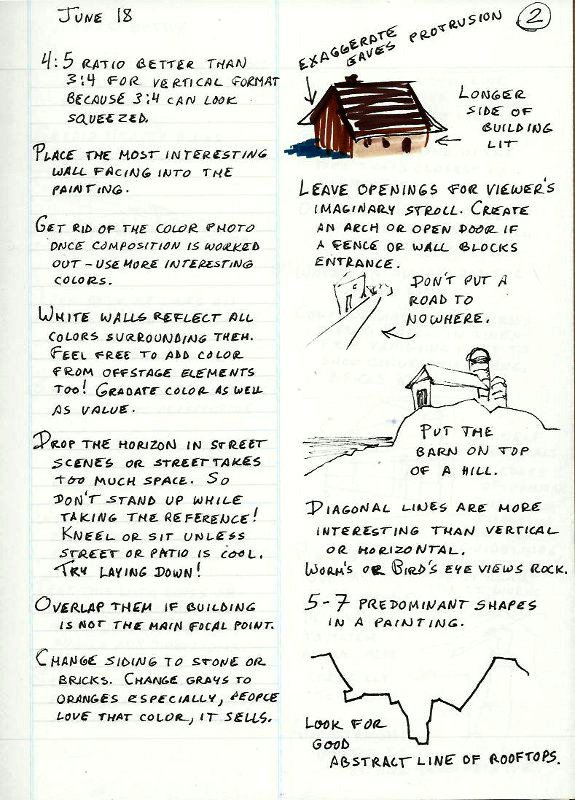 June 18
4:5 RATIO BETTER THAN
3:4 FOR VERTICAL FORMAT
BECAUSE 3:4 CAN LOOK
SQUEEZED.
PLACE THE MOST INTERESTING
WALL FACING INTO THE
PAINTING.
GET RID OF THE COLOR PHOTO
ONCE COMPOSITION IS WORKED
OUT – USE MORE INTERESTING
COLORS.
WHITE WALLS REFLECT ALL
COLORS SURROUNDING THEM.
FEEL FREE TO ADD COLOR
FROM OFFSTAGE ELEMENTS
TOO! GRADATE COLOR AS WELL
AS VALUE.
DROP THE HORIZON IN STREET
SCENES OR STREET TAKES
TOO MUCH SPACE. SO
DON'T STAND UP WHILE
TAKING THE REFERENCE!
KNEEL OR SIT UNLESS
STREET OR PATIO IS COOL.
TRY LAYING DOWN!
OVERLAP THEM IF BUILDING
IS NOT THE MAIN FOCAL POINT.
CHANGE SIDING TO STONE OR
BRICKS. CHANGE GRAYS TO
ORANGES ESPECIALLY, PEOPLE
LOVE THAT COLOR, IT SELLS.
2
EXAGGERATE
EAVES PROTRUSION
LONGER
SIDE OF
BUILDING
LIT
LEAVE OPENINGS FOR VIEWER'S
IMAGINARY STROLL. CREATE
AN ARCH OR OPEN DOOR IF
A FENCE OR WALL BLOCKS
ENTRANCE.
DON'T PUT A
ROAD TO
NOWHERE.
PUT THE
BARN ON TOP
OF A HILL.
DIAGONAL LINES ARE MORE
INTERESTING THAN VERTICAL
OR HORIZONTAL.
WORM'S OR BIRD'S EYE VIEWS ROCK.
5-7 PREDOMINANT SHAPES
IN A PAINTING.
LOOK FOR
GOOD
ABSTRACT LINE OF ROOFTOPS.